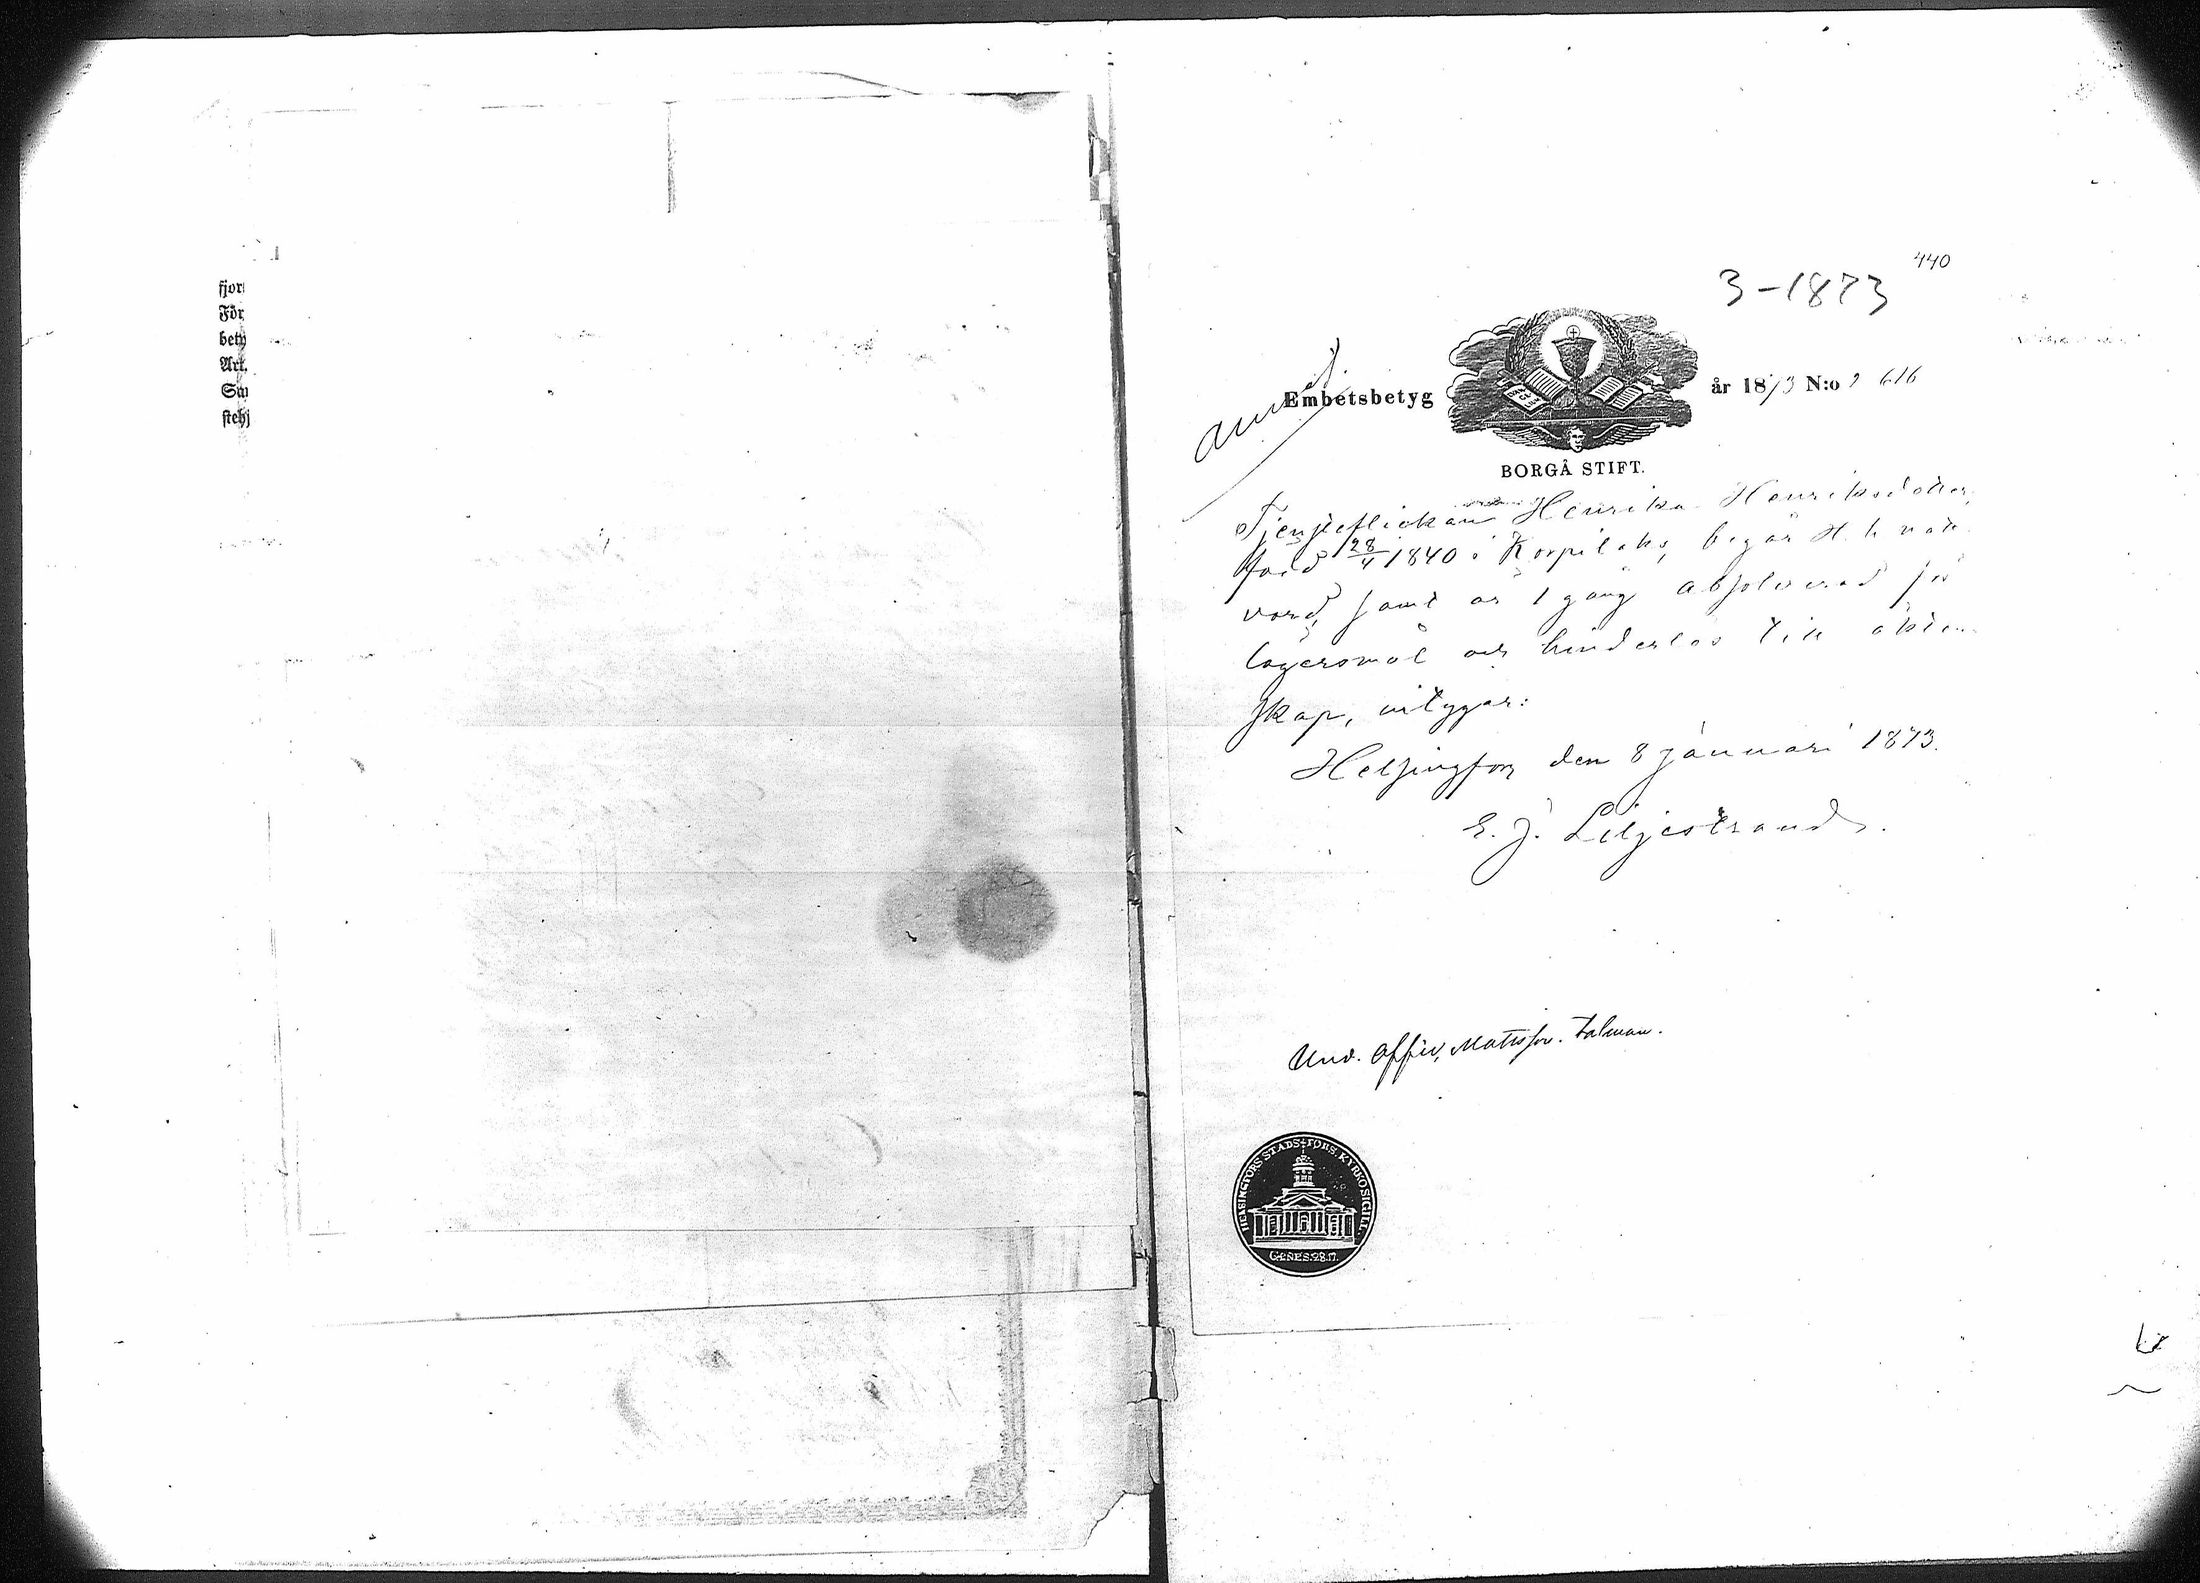 fjor
För
bety
Art.
Sa
stehj
440
3-1873
Embetsbetyg
år 1873 N:o 616
BORGÅ STIFT.
Tjensteflickan Henrika Henriksdotter,
född 28/4 1840 i Korpilaks, begår H. h. natt
vard, samt är 1 gång absolverad för
lägersmål och hinderlös till äkten
skap, intygar:
Helsingfors den 8 januari 1873.
E. J. Liljestrand.
Und. Offic. Mattsson. Talman.
HELSINGFORS STADS FÖRS. KYRKOSIGILL.
GENES. 28.17.